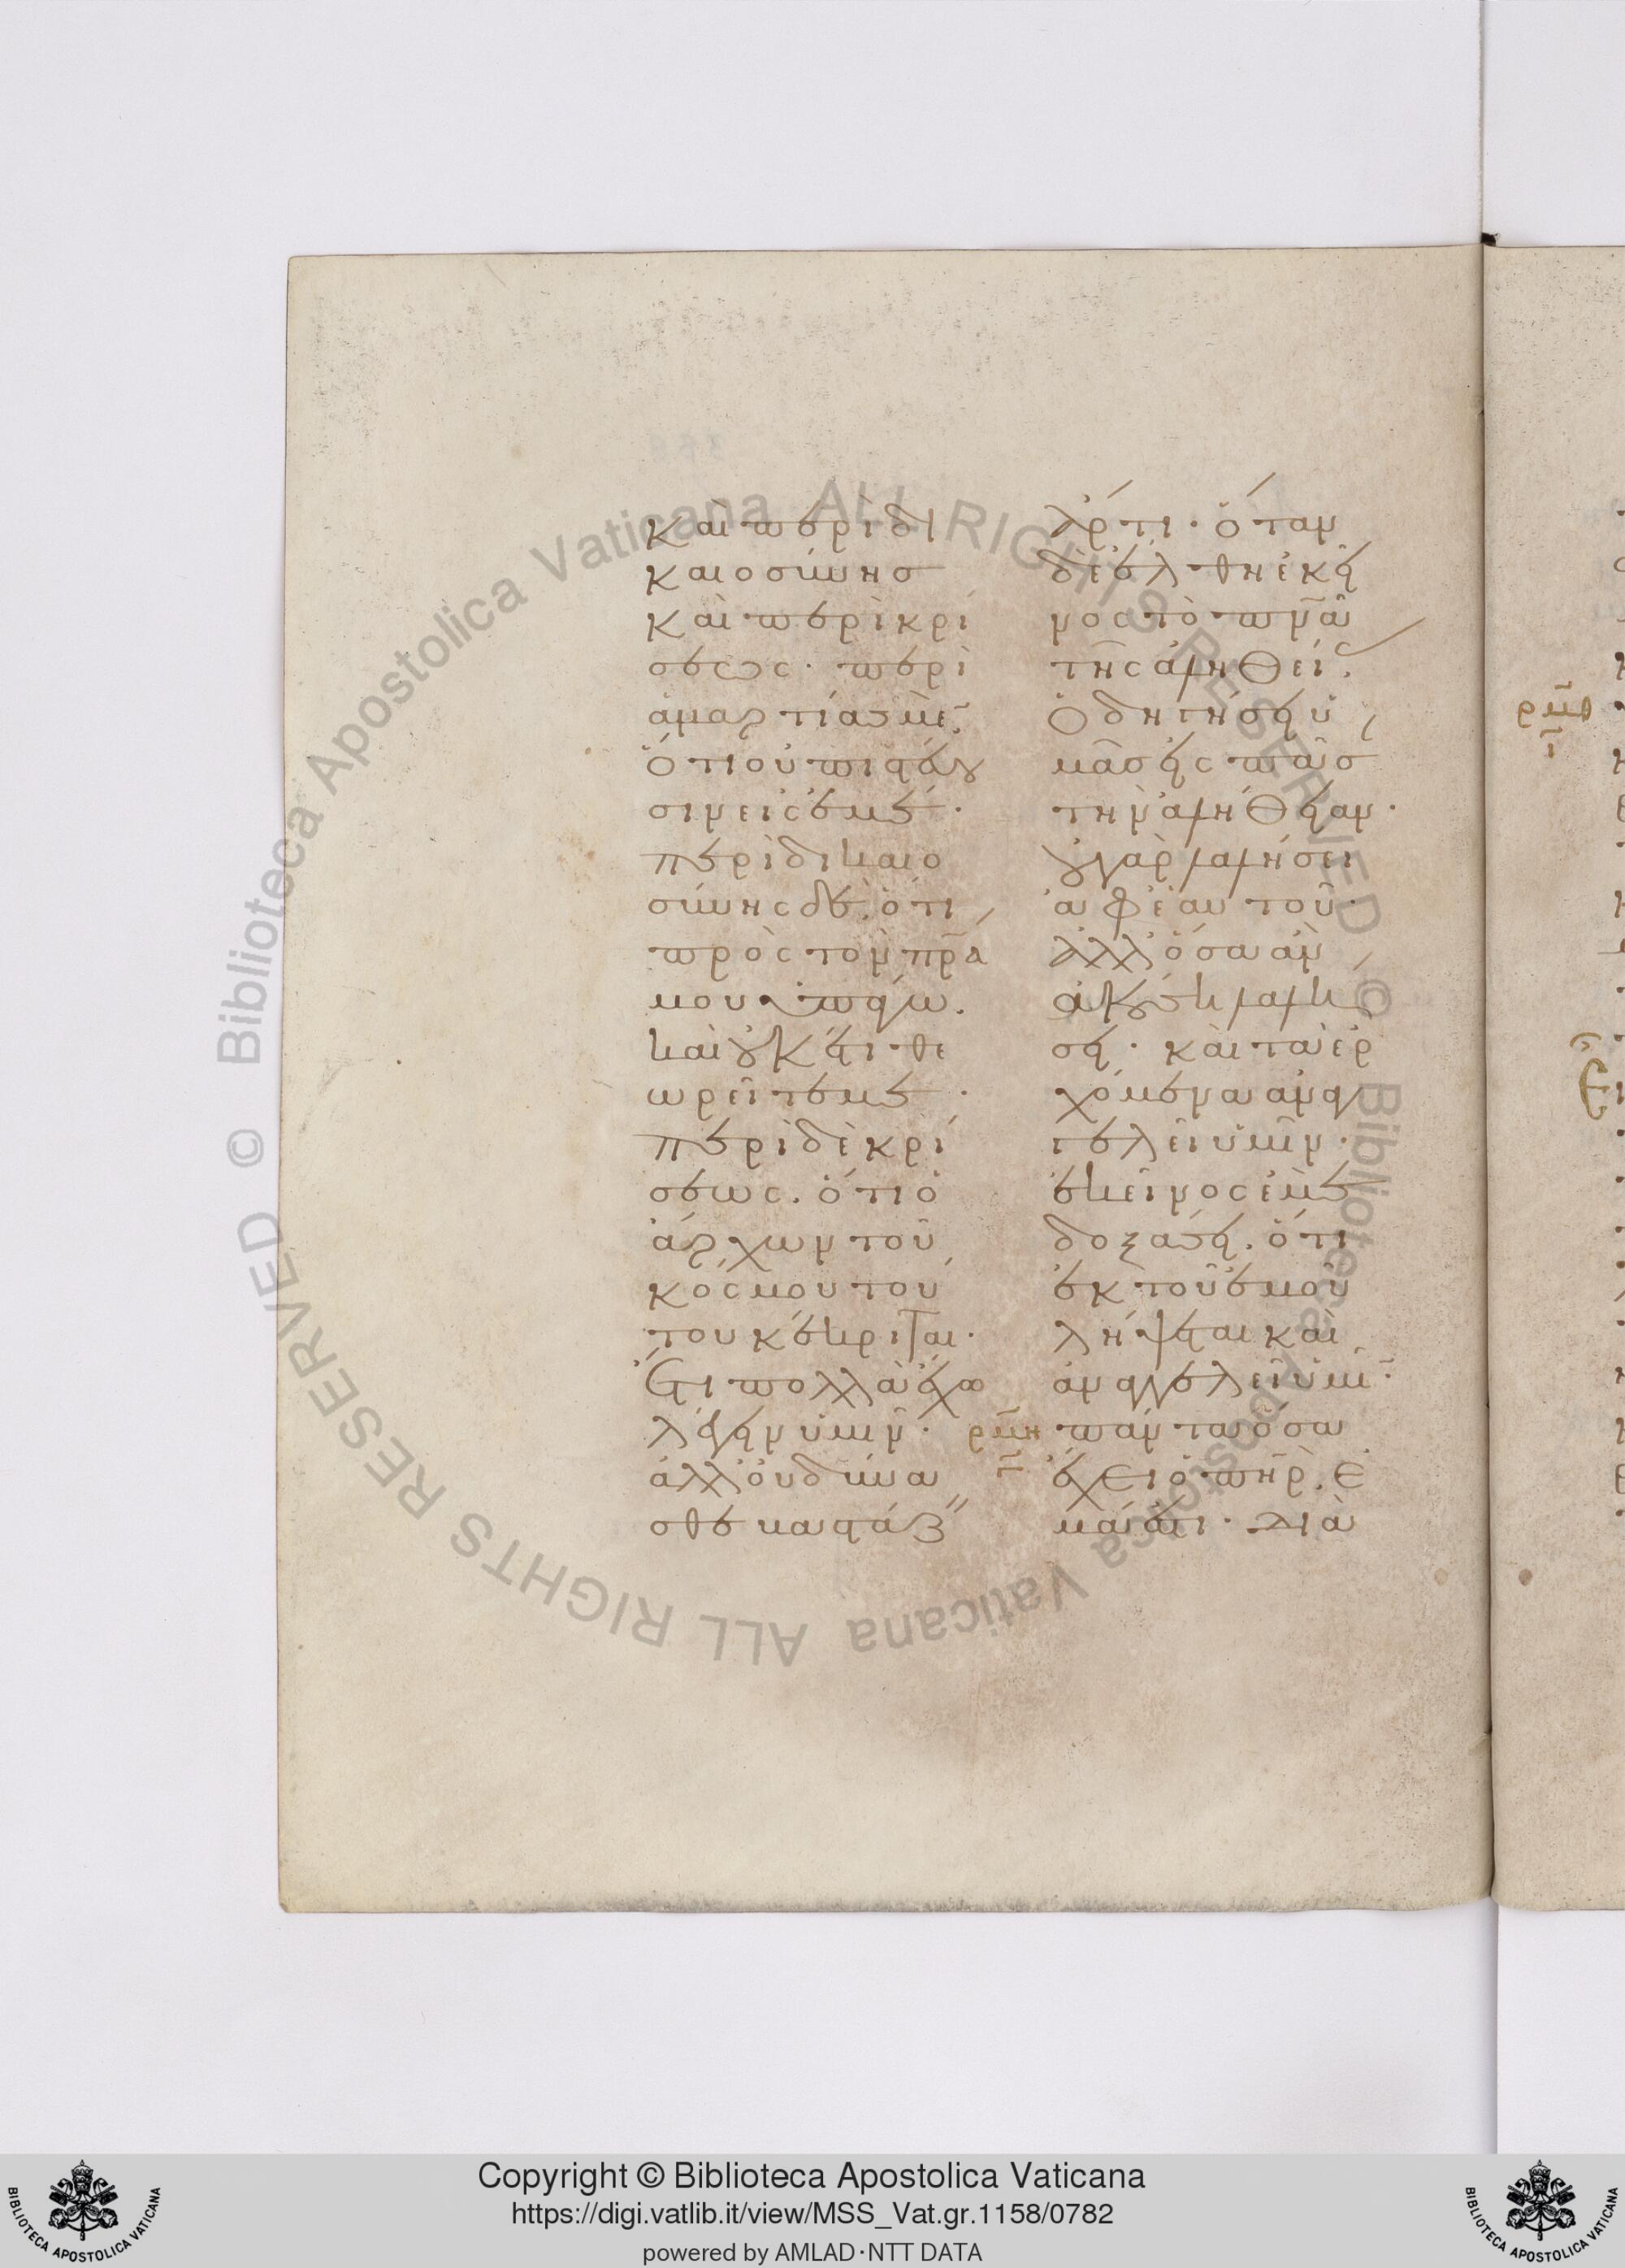 καὶ περὶ δι
καιοσύνησ
καὶ περὶ κρί
σεως· περὶ
ἁμαρτίασ μὲ̅
ὅτι οὐ πιστεύου
σιν εἰς ἐμέ·
περὶ δικαιο
σύνης δέ. ὅτι
πρὸς τὸν πρ̅α
μου ὑπάγω.
καὶ οὐκ ἔτι θε
ωρεῖτε με·
περὶ δὲ κρί
σεως. ὅτι ὁ
ἄρχων τοῦ
κόσμου τού
του κέκριται·
Ἔτι πολλὰ ἔχω
λέγειν ὑμῖν·
ἀλλ' οὐ δύνα
σθε βαστάζειν
ἄρτι· ὅταν
δὲ ἔλθη ἐκεῖ
νος τὸ πν̅α
τῆς ἀληθείας
Ὁδηγήσει ὑ
μᾶς εἰς πᾶσαν
τὴν ἀλήθειαν·
οὐ γὰρ λαλήσει
ἀφ' ἑαυτοῦ·
ἀλλ' ὅσα ἂν
ἀκούση λαλή
σει· καὶ τὰ ἐρ
χόμενα ἀναγ
γελεῖ ὑμῖν·
ἐκεῖνος ἐμὲ
δοξάσει. ὅτι
ἐκ τοῦ ἐμοῦ
λήψεται καὶ
ἀναγγελεῖ ὑμῖ̅·
ρμη
πάντα ὅσα
ἔχει ὁ πη̅ρ. ἐ
μά ἐστι· Διὰ
Biblioteca Apostolica Vaticana ALL RIGHTS RESERVED ©
Biblioteca Apostolica Vaticana ALL RIGHTS RESERVED ©
Copyright © Biblioteca Apostolica Vaticana
https://digi.vatlib.it/view/MSS_Vat.gr.1158/0782
powered by AMLAD·NTT DATA
BIBLIOTECA APOSTOLICA VATICANA
BIBLIOTECA APOSTOLICA VATICANA